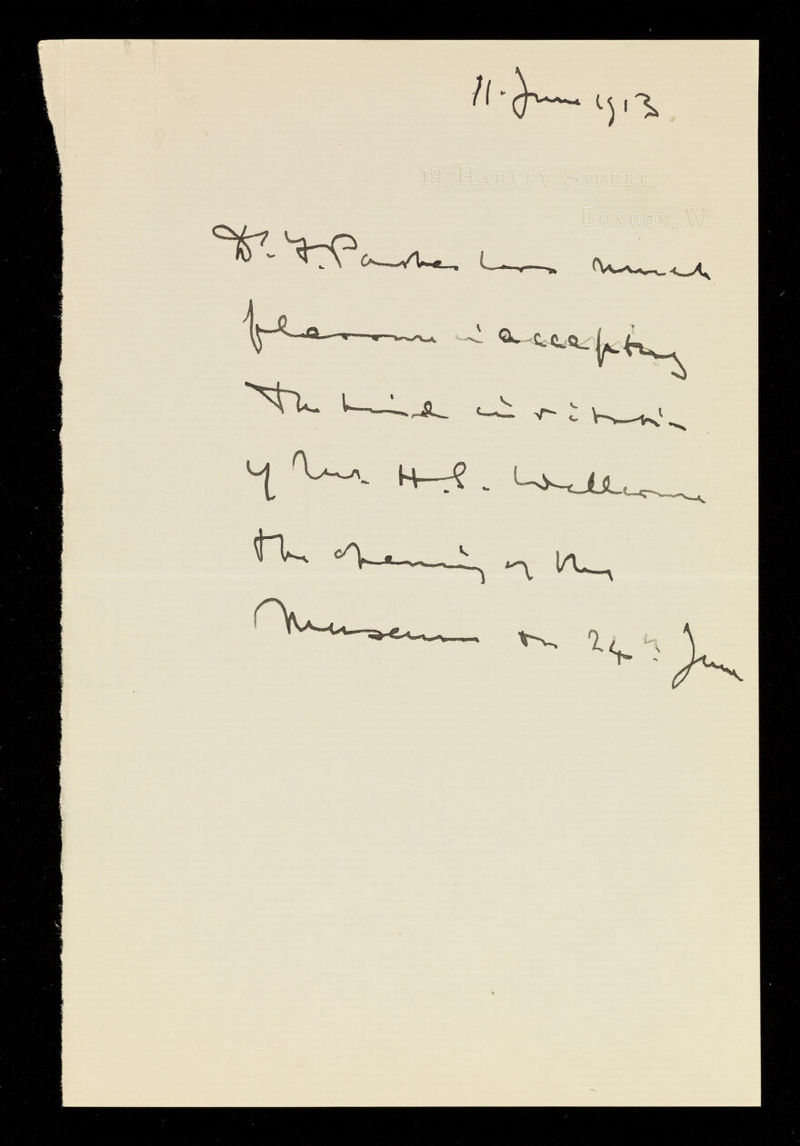 11. June 1913.
19, HARLEY STREET.
LONDON, W.
Dr. F. Parkes has much
pleasure in accepting
the kind invitation
of Mr. H.S. Wellcome
the opening of the
Museum on 24th June